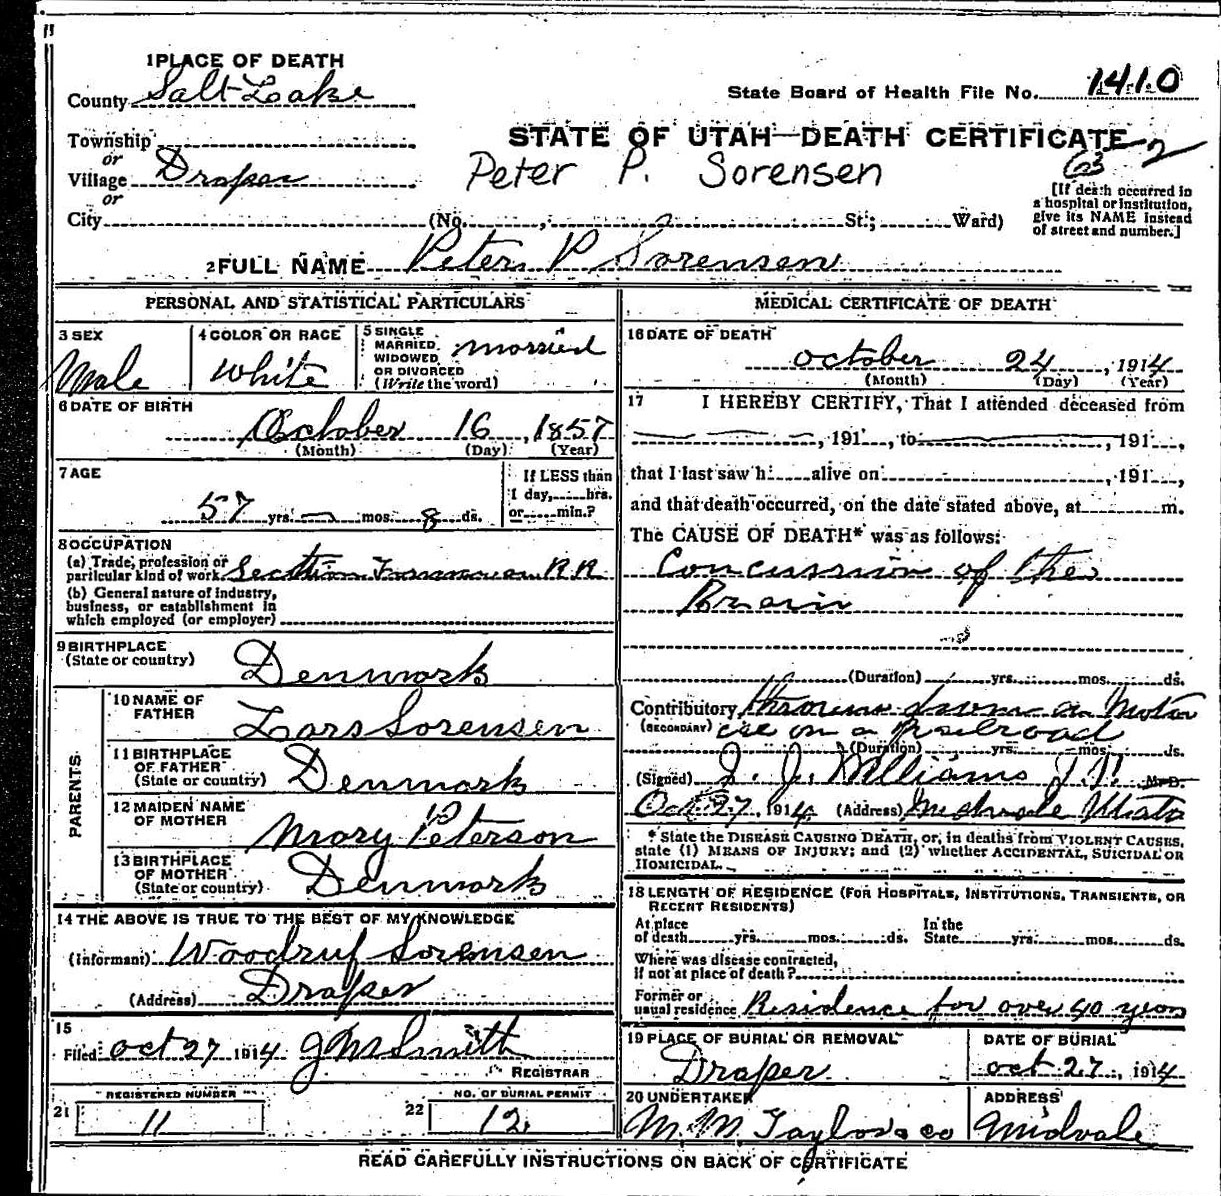 1 PLACE OF DEATH
County Salt Lake
State Board of Health File No. 1410
Township
or
STATE OF UTAH—DEATH CERTIFICATE
Village Draper
Peter P. Sorensen
63 2
or
City (No. , St.; Ward)
[If death occurred in
a hospital or institution,
give its NAME instead
of street and number.]
2 FULL NAME Peter P Sorensen
PERSONAL AND STATISTICAL PARTICULARS
3 SEX
Male
4 COLOR OR RACE
White
5 SINGLE
MARRIED
WIDOWED
OR DIVORCED
(Write the word)
married
6 DATE OF BIRTH
October 16, 1857
(Month) (Day) (Year)
7 AGE
57 yrs. — mos. 8 ds.
If LESS than
1 day, hrs.
or min.?
8 OCCUPATION
(a) Trade, profession or
particular kind of work Secttion Foreman RR
(b) General nature of industry,
business, or establishment in
which employed (or employer)
9 BIRTHPLACE
(State or country)
Denmark
PARENTS
10 NAME OF
FATHER
Lars Sorensen
11 BIRTHPLACE
OF FATHER
(State or country)
Denmark
12 MAIDEN NAME
OF MOTHER
Mary Peterson
13 BIRTHPLACE
OF MOTHER
(State or country)
Denmark
14 THE ABOVE IS TRUE TO THE BEST OF MY KNOWLEDGE
(Informant) Woodruf Sorensen
(Address) Draper
15
Filed Oct 27 1914 J M Smith
REGISTRAR
REGISTERED NUMBER
21 11
NO. OF BURIAL PERMIT
22 12
MEDICAL CERTIFICATE OF DEATH
16 DATE OF DEATH
October 24, 1914
(Month) (Day) (Year)
17 I HEREBY CERTIFY, That I attended deceased from
, 191 , to , 191 ,
that I last saw h alive on , 191 ,
and that death occurred, on the date stated above, at m.
The CAUSE OF DEATH* was as follows:
Concussion of the
Brain
(Duration) yrs. mos. ds.
Contributory thrown from a Motor
(SECONDARY) car on a Railroad
(Duration) yrs. mos. ds.
(Signed) J. J. Williams J.P. M.D.
Oct 27, 1914 (Address) Midvale Utah
* State the DISEASE CAUSING DEATH, or, in deaths from VIOLENT CAUSES,
state (1) MEANS OF INJURY; and (2) whether ACCIDENTAL, SUICIDAL OR
HOMICIDAL.
18 LENGTH OF RESIDENCE (FOR HOSPITALS, INSTITUTIONS, TRANSIENTS, OR
RECENT RESIDENTS)
At place
of death yrs. mos. ds.
In the
State yrs. mos. ds.
Where was disease contracted,
if not at place of death?
Former or
usual residence Residence for over 40 years
19 PLACE OF BURIAL OR REMOVAL
Draper
DATE OF BURIAL
Oct 27, 1914
20 UNDERTAKER
M. M. Taylor & co
ADDRESS
Midvale
READ CAREFULLY INSTRUCTIONS ON BACK OF CERTIFICATE